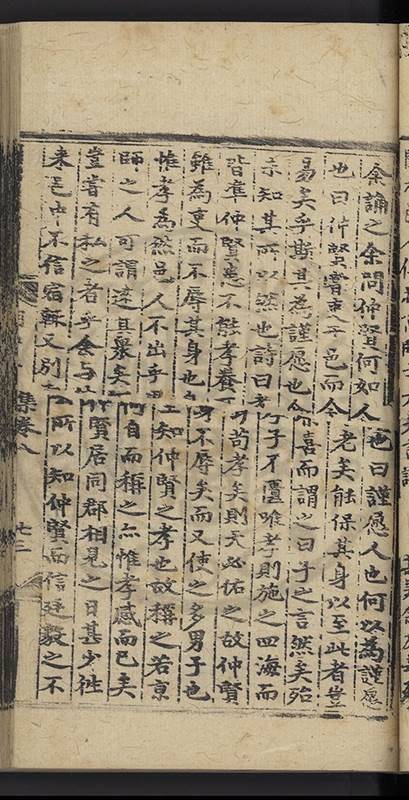 余誦之余問仲賢何如人也曰謹愿人也何以為謹愿
也曰仲賢嘗吏于邑而今老矣能保其身以至此者豈
易矣乎斯其為謹愿也余喜而謂之曰子之言然矣殆
未知其所以然也詩曰孝子不匱唯孝則施之四海而
皆準仲賢患不能孝養苟孝矣則天必佑之故仲賢
雖為吏而不辱其身也身不辱矣而又使之多男子也
惟孝為然邑人不出乎知仲賢之孝也故稱之若京
師之人可謂遠且衆矣何自而稱之亦惟孝感而已矣
豈嘗有私之者乎余与仲賢居同郡相見之日甚少往
来邑中不信宿輒又別所以知仲賢而信廷毅之不
集卷八
七三